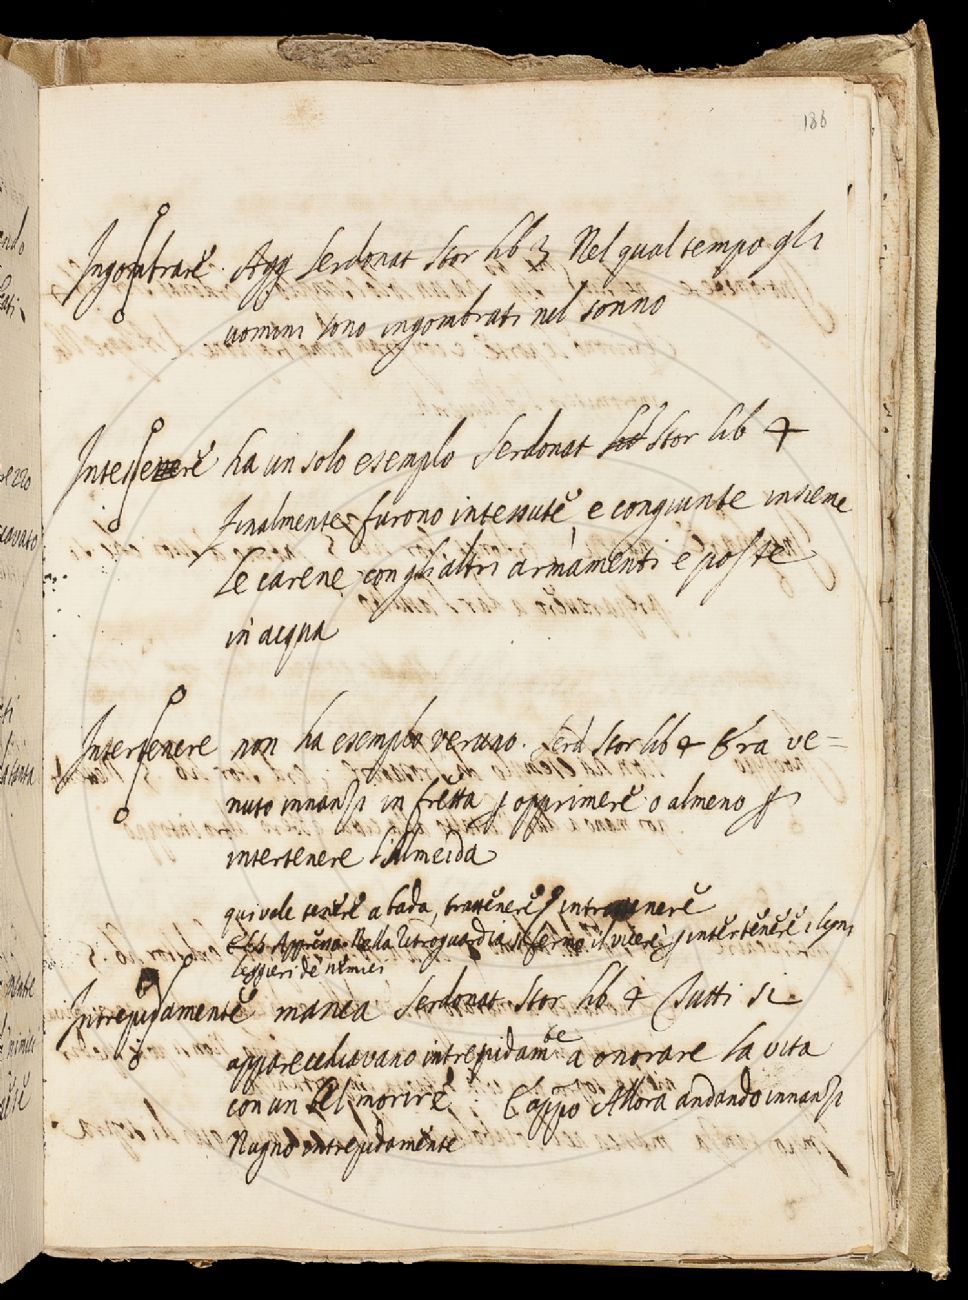 186
Ingombrare. Agg Serdonat Stor lib 3 Nel qual tempo gli
uomini sono ingombrati nel sonno
Intessere ha un solo esemplo Serdonat Stor lib 4
finalmente furono intessute, e congiunte insieme
le carene con gli altri armamenti e poste
in acqua
Intertenere non ha esemplo veruno. Serd Stor lib 4 Era ve=
nuto innanzi in fretta p opprimere o almeno p
intertenere l'Almeida
qui vale tenere a bada, trattenere, intrattenere
Nella retroguardia si fermò il vicerè p intertenere i legni
leggieri de nemici
Intrepidamente manca Serdonat Stor lib 4 Tutti si
apparecchiavano intrepidamte a onorare la vita
con un bel morire E appo Allora andando innanzi
Nugno intrepidamente